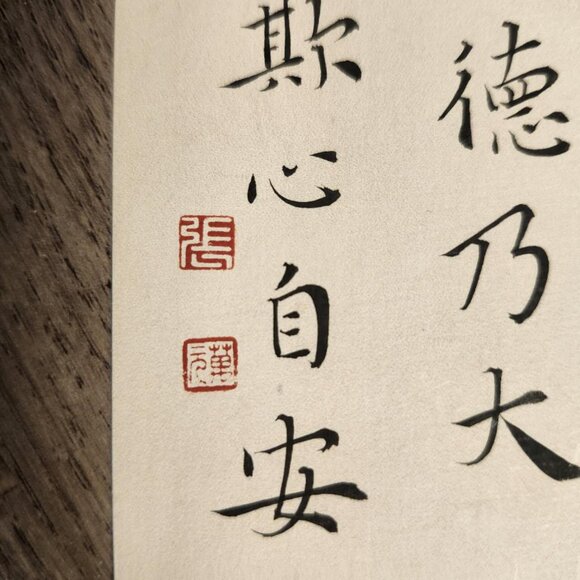 德乃大
欺心自安
張